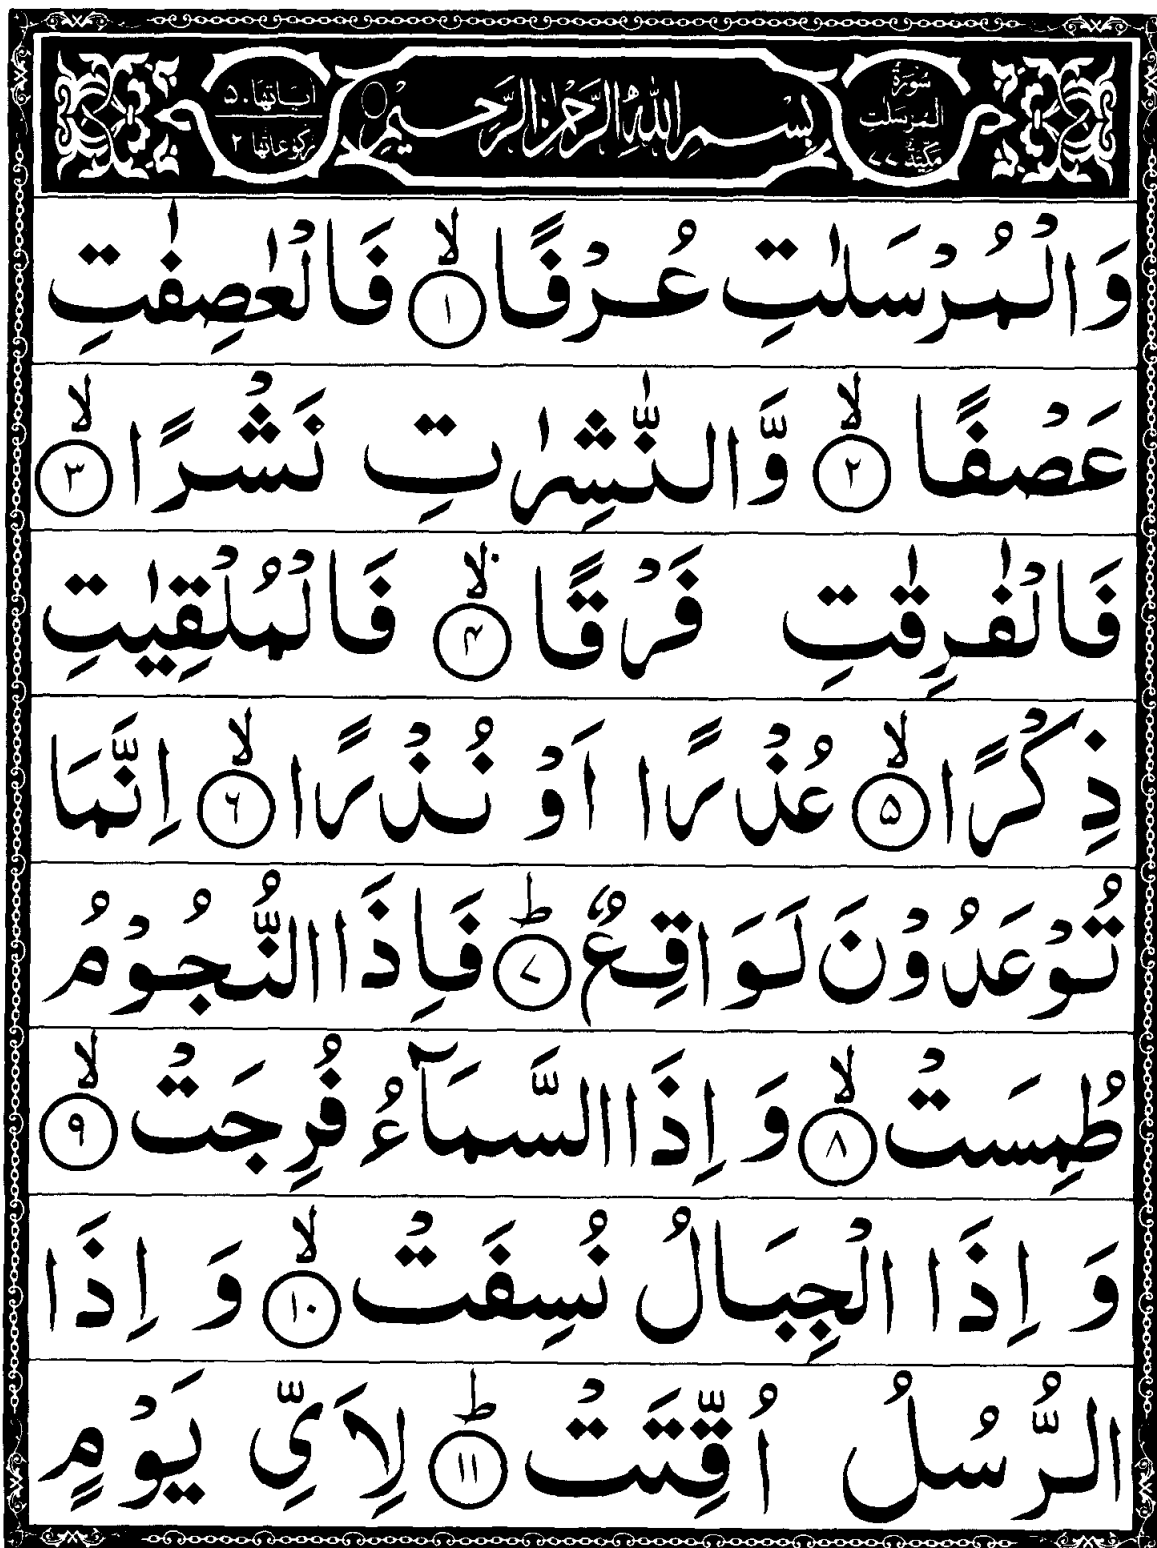 سُوْرَةُ الْمُرْسَلٰتِ مَكِّيَّةٌ ٧٧
بِسْمِ اللّٰهِ الرَّحْمٰنِ الرَّحِيْمِ
اٰيَاتُهَا ٥٠
رُكُوْعَاتُهَا ٢
وَالْمُرْسَلٰتِ عُرْفًا ۙ﴿١﴾ فَالْعٰصِفٰتِ
عَصْفًا ۙ﴿٢﴾ وَّالنّٰشِرٰتِ نَشْرًا ۙ﴿٣﴾
فَالْفٰرِقٰتِ فَرْقًا ۙ﴿۴﴾ فَالْمُلْقِيٰتِ
ذِكْرًا ۙ﴿۵﴾ عُذْرًا اَوْ نُذْرًا ۙ﴿۶﴾ اِنَّمَا
تُوْعَدُوْنَ لَوَاقِعٌ ؕ﴿۷﴾ فَاِذَا النُّجُوْمُ
طُمِسَتْ ۙ﴿۸﴾ وَ اِذَا السَّمَآءُ فُرِجَتْ ۙ﴿۹﴾
وَ اِذَا الْجِبَالُ نُسِفَتْ ۙ﴿۱۰﴾ وَ اِذَا
الرُّسُلُ اُقِّتَتْ ؕ﴿۱۱﴾ لِاَيِّ يَوْمٍ